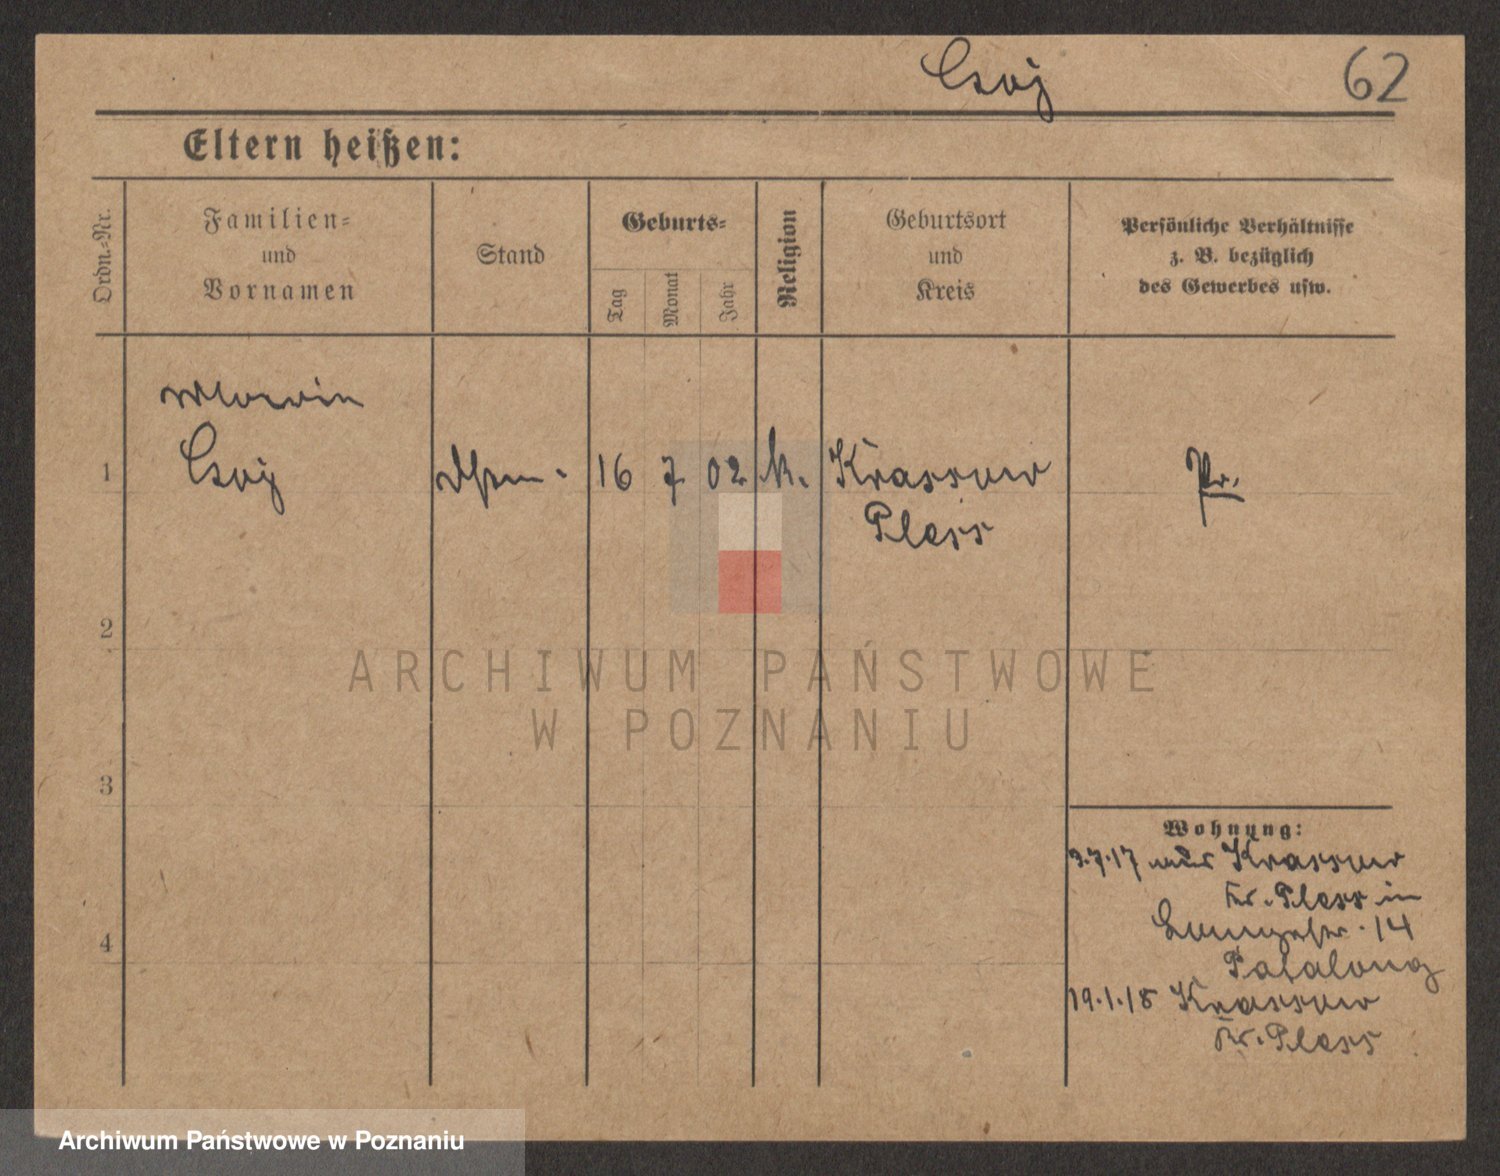 Czoj 62
Eltern heißen:
Ordn.-Nr.
Familien-
und
Vornamen
Stand
Geburts-
Tag
Monat
Jahr
Religion
Geburtsort
und
Kreis
Persönliche Verhältnisse
z. B. bezüglich
des Gewerbes usw.
1 Czoj 16 7 02 k. Krassow Pr.
Pless
2
3
4
Wohnung:
3.7.17 aus Krassow
Kr. Pless in
14
19.1.18 Krassow
Kr. Pless
ARCHIWUM PAŃSTWOWE
W POZNANIU
Archiwum Państwowe w Poznaniu